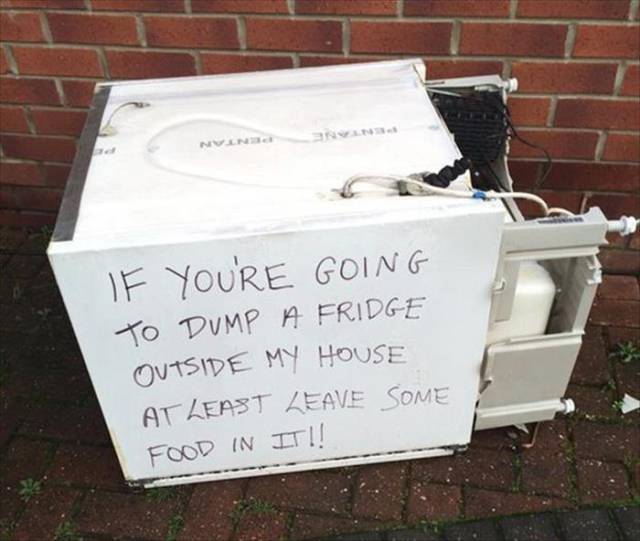 PENTANE PENTAN PE
IF YOU'RE GOING
TO DUMP A FRIDGE
OUTSIDE MY HOUSE
AT LEAST LEAVE SOME
FOOD IN IT!!